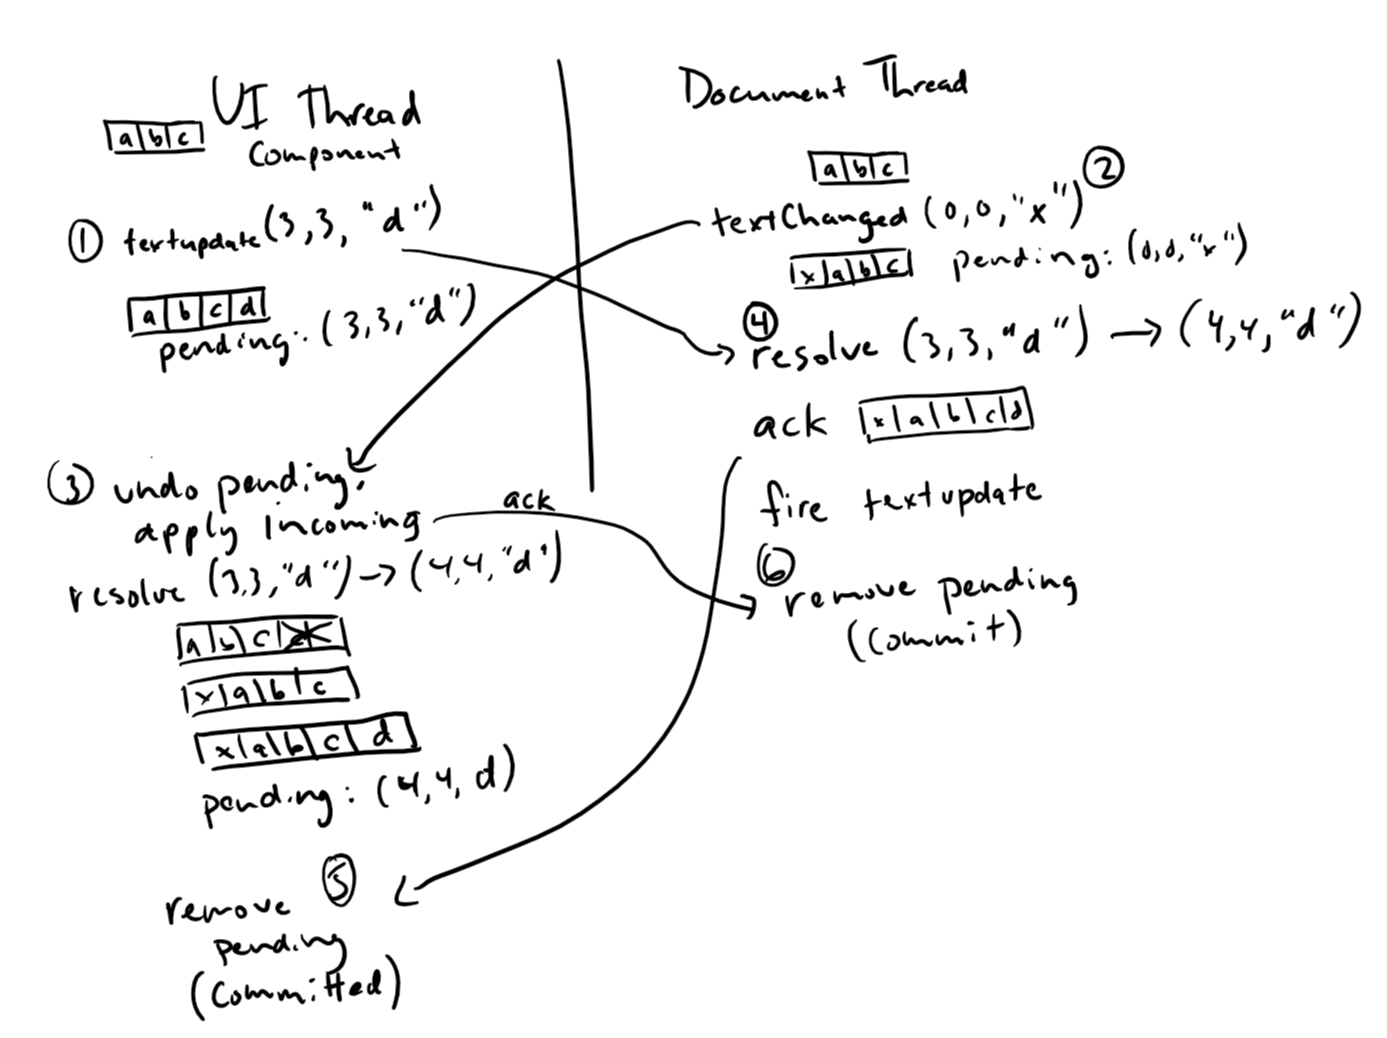 UI Thread
Component
a b c
① textupdate (3,3, "d")
a b c d
pending: (3,3, "d")
③ undo pending,
apply incoming
ack
resolve (3,3, "d") → (4,4, "d")
a b c
x a b c
x a b c d
pending: (4,4, d)
⑤
remove
pending
(committed)
Document Thread
a b c
textChanged (0,0, "x") ②
x a b c pending: (0,0, "x")
④
resolve (3,3, "d") → (4,4, "d")
ack x a b c d
fire textupdate
⑥
remove pending
(commit)